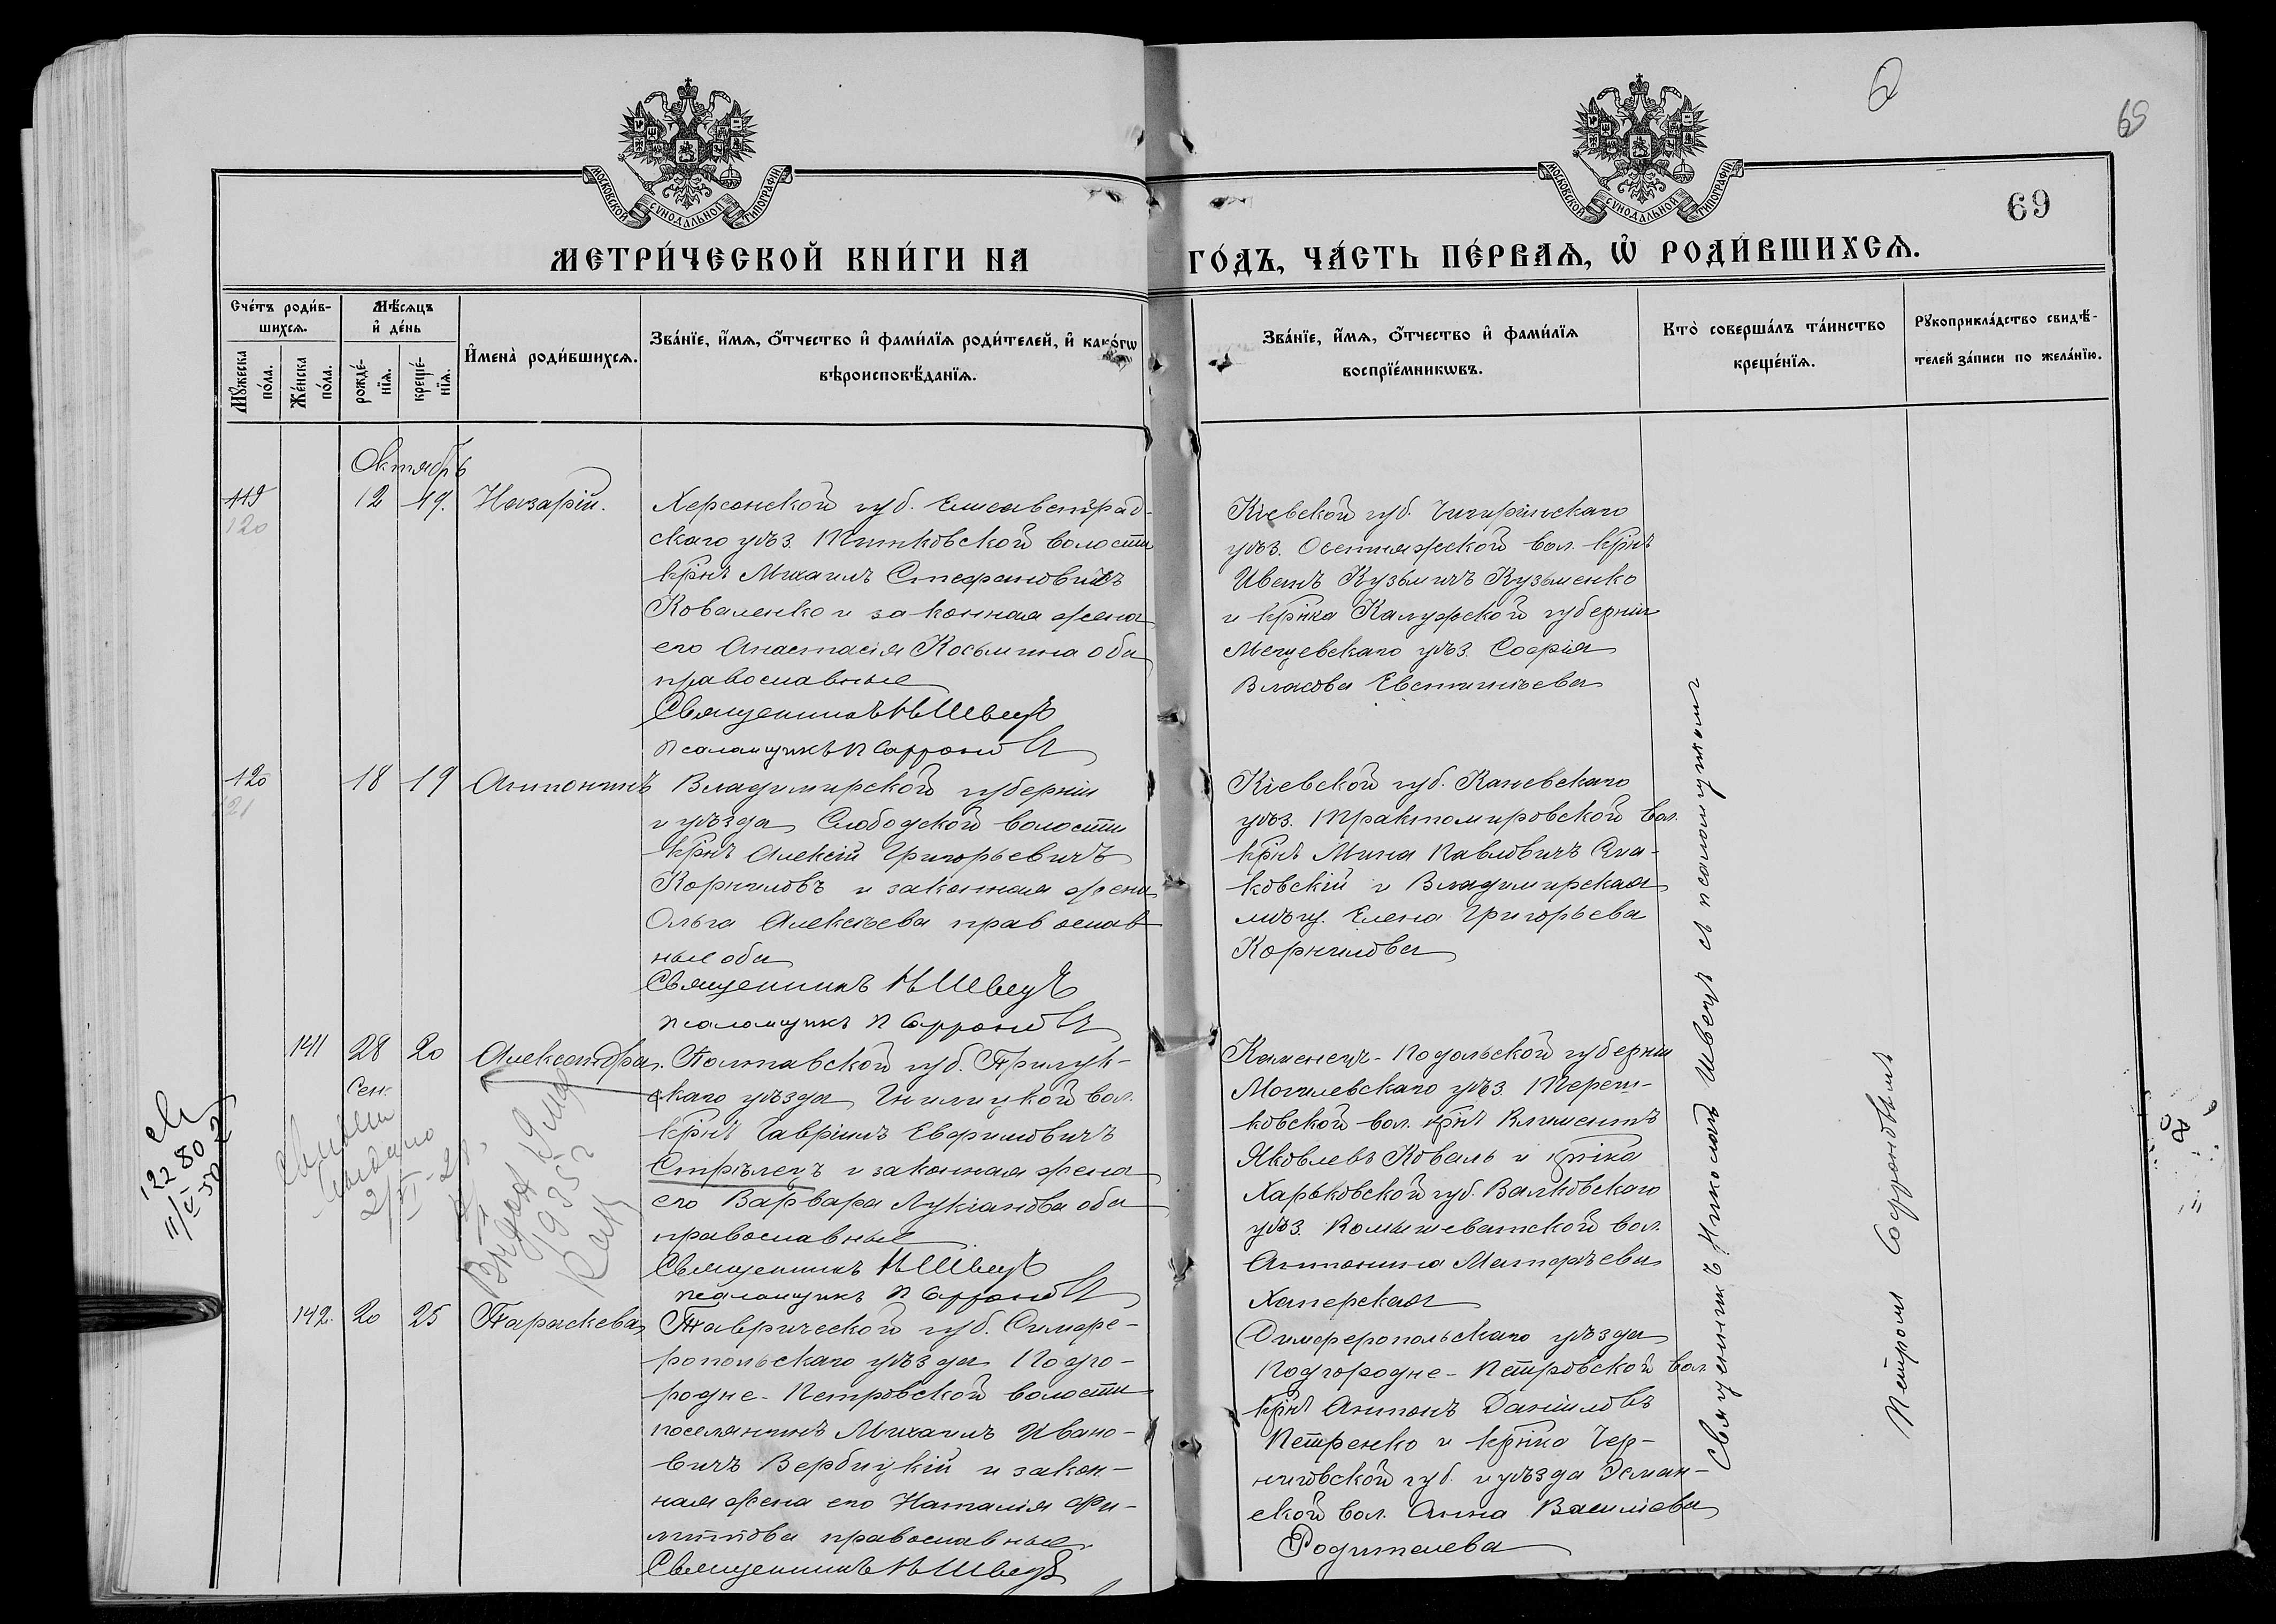 69
69
МОСКОВСКОЙ СѴНОДАЛЬНОЙ ТИПОГРАФІИ
МОСКОВСКОЙ СѴНОДАЛЬНОЙ ТИПОГРАФІИ
МЕТРИ́ЧЕСКОЙ КНИ́ГИ НА
ГО́ДЪ, ЧА́СТЬ ПЕ́РВАѦ, Ѡ҆ РОДИ́ВШИХСѦ.
Сче́тъ роди́в-
шихсѧ.
Мѣ́сѧцъ
и҆ де́нь
Мꙋ́жеска
по́ла.
Же́нска
по́ла.
рожде́-
нїѧ.
креще́-
нїѧ.
И҆мена̀ роди́вшихсѧ.
Зва́нїе, и҆́мѧ, ѻ҆́тчество и҆ фами́лїѧ роди́телей, и҆ како́гѡ
вѣроисповѣ́данїѧ.
Зва́нїе, и҆́мѧ, ѻ҆́тчество и҆ фами́лїѧ
воспрїе́мникѡвъ.
Кто̀ соверша́лъ та́инство
креще́нїѧ.
Рꙋкоприкла́дство свидѣ́-
телей за́писи по жела́нїю.
Октябрь
119
120
12 19. Назарій.
Херсонской губ. Елисаветград-
скаго уѣз. Митковской волости
крнъ Михаилъ Стефановичъ
Коваленко и законная жена
его Анастасія Косьмина оба
православные
Священникъ Н Швецъ
Псаломщикъ П Сафроновъ
Кіевской губ. Чигиринскаго
уѣз. Осетняжской вол. крнъ
Иванъ Кузьмичъ Кузьменко
и крнка Калужской губерніи
Мещевскаго уѣз. Софія
Власова Евстигнѣева
120
121
18 19 Антонинъ
Владимирской губерніи
и уѣзда Слободской волости
крнъ Алексій Григорьевичъ
Корниловъ и законная жена
Ольга Алексѣева православ
ные оба
Священникъ Н Швецъ
Псаломщикъ П Сафроновъ
Кіевской губ. Каневскаго
уѣз. Трактомировской вол.
крнъ Мина Павловичъ
ковскій и Владимирская
мѣщ. Елена Григорьева
Корнилова
141 28 20 Александра.
Сен.
Полтавской губ. Прилук-
скаго уѣзда Гнилицкой вол.
крнъ Гавріилъ Евфимовичъ
Стрѣлецъ и законная жена
его Варвара Лукіанова оба
православные
Священникъ Н Швецъ
Псаломщикъ П Сафроновъ
Каменецъ-Подольской губерніи
Могилевскаго уѣз.
ковской вол. крнъ Климентъ
Яковлевъ Коваль и крнка
Харьковской губ. Валковскаго
уѣз. Комышеватской вол.
Антонина Матфѣева
Хаперская
12280
11/V
Выдано
2/VI
1935 г
142. 20 25 Параскева
Таврической губ. Симфе-
ропольскаго уѣзда Подго-
родне-Петровской волости
поселянинъ Михаилъ Ивано-
вичъ Вербицкій и закон-
ная жена его Наталія Фи-
липпова православные.
Священникъ Н Швецъ
Симферопольскаго уѣзда
Подгородне-Петровской вол.
крнъ Антонъ Даніиловъ
Петренко и крнка Чер-
ниговской губ. и уѣзда
ской вол. Анна Василіева
Родителева
Священникъ Николай Швецъ съ псаломщикомъ
Петромъ Сафроновымъ